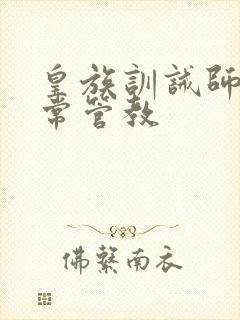 皇族訓誡師
常管教
佛繫南衣